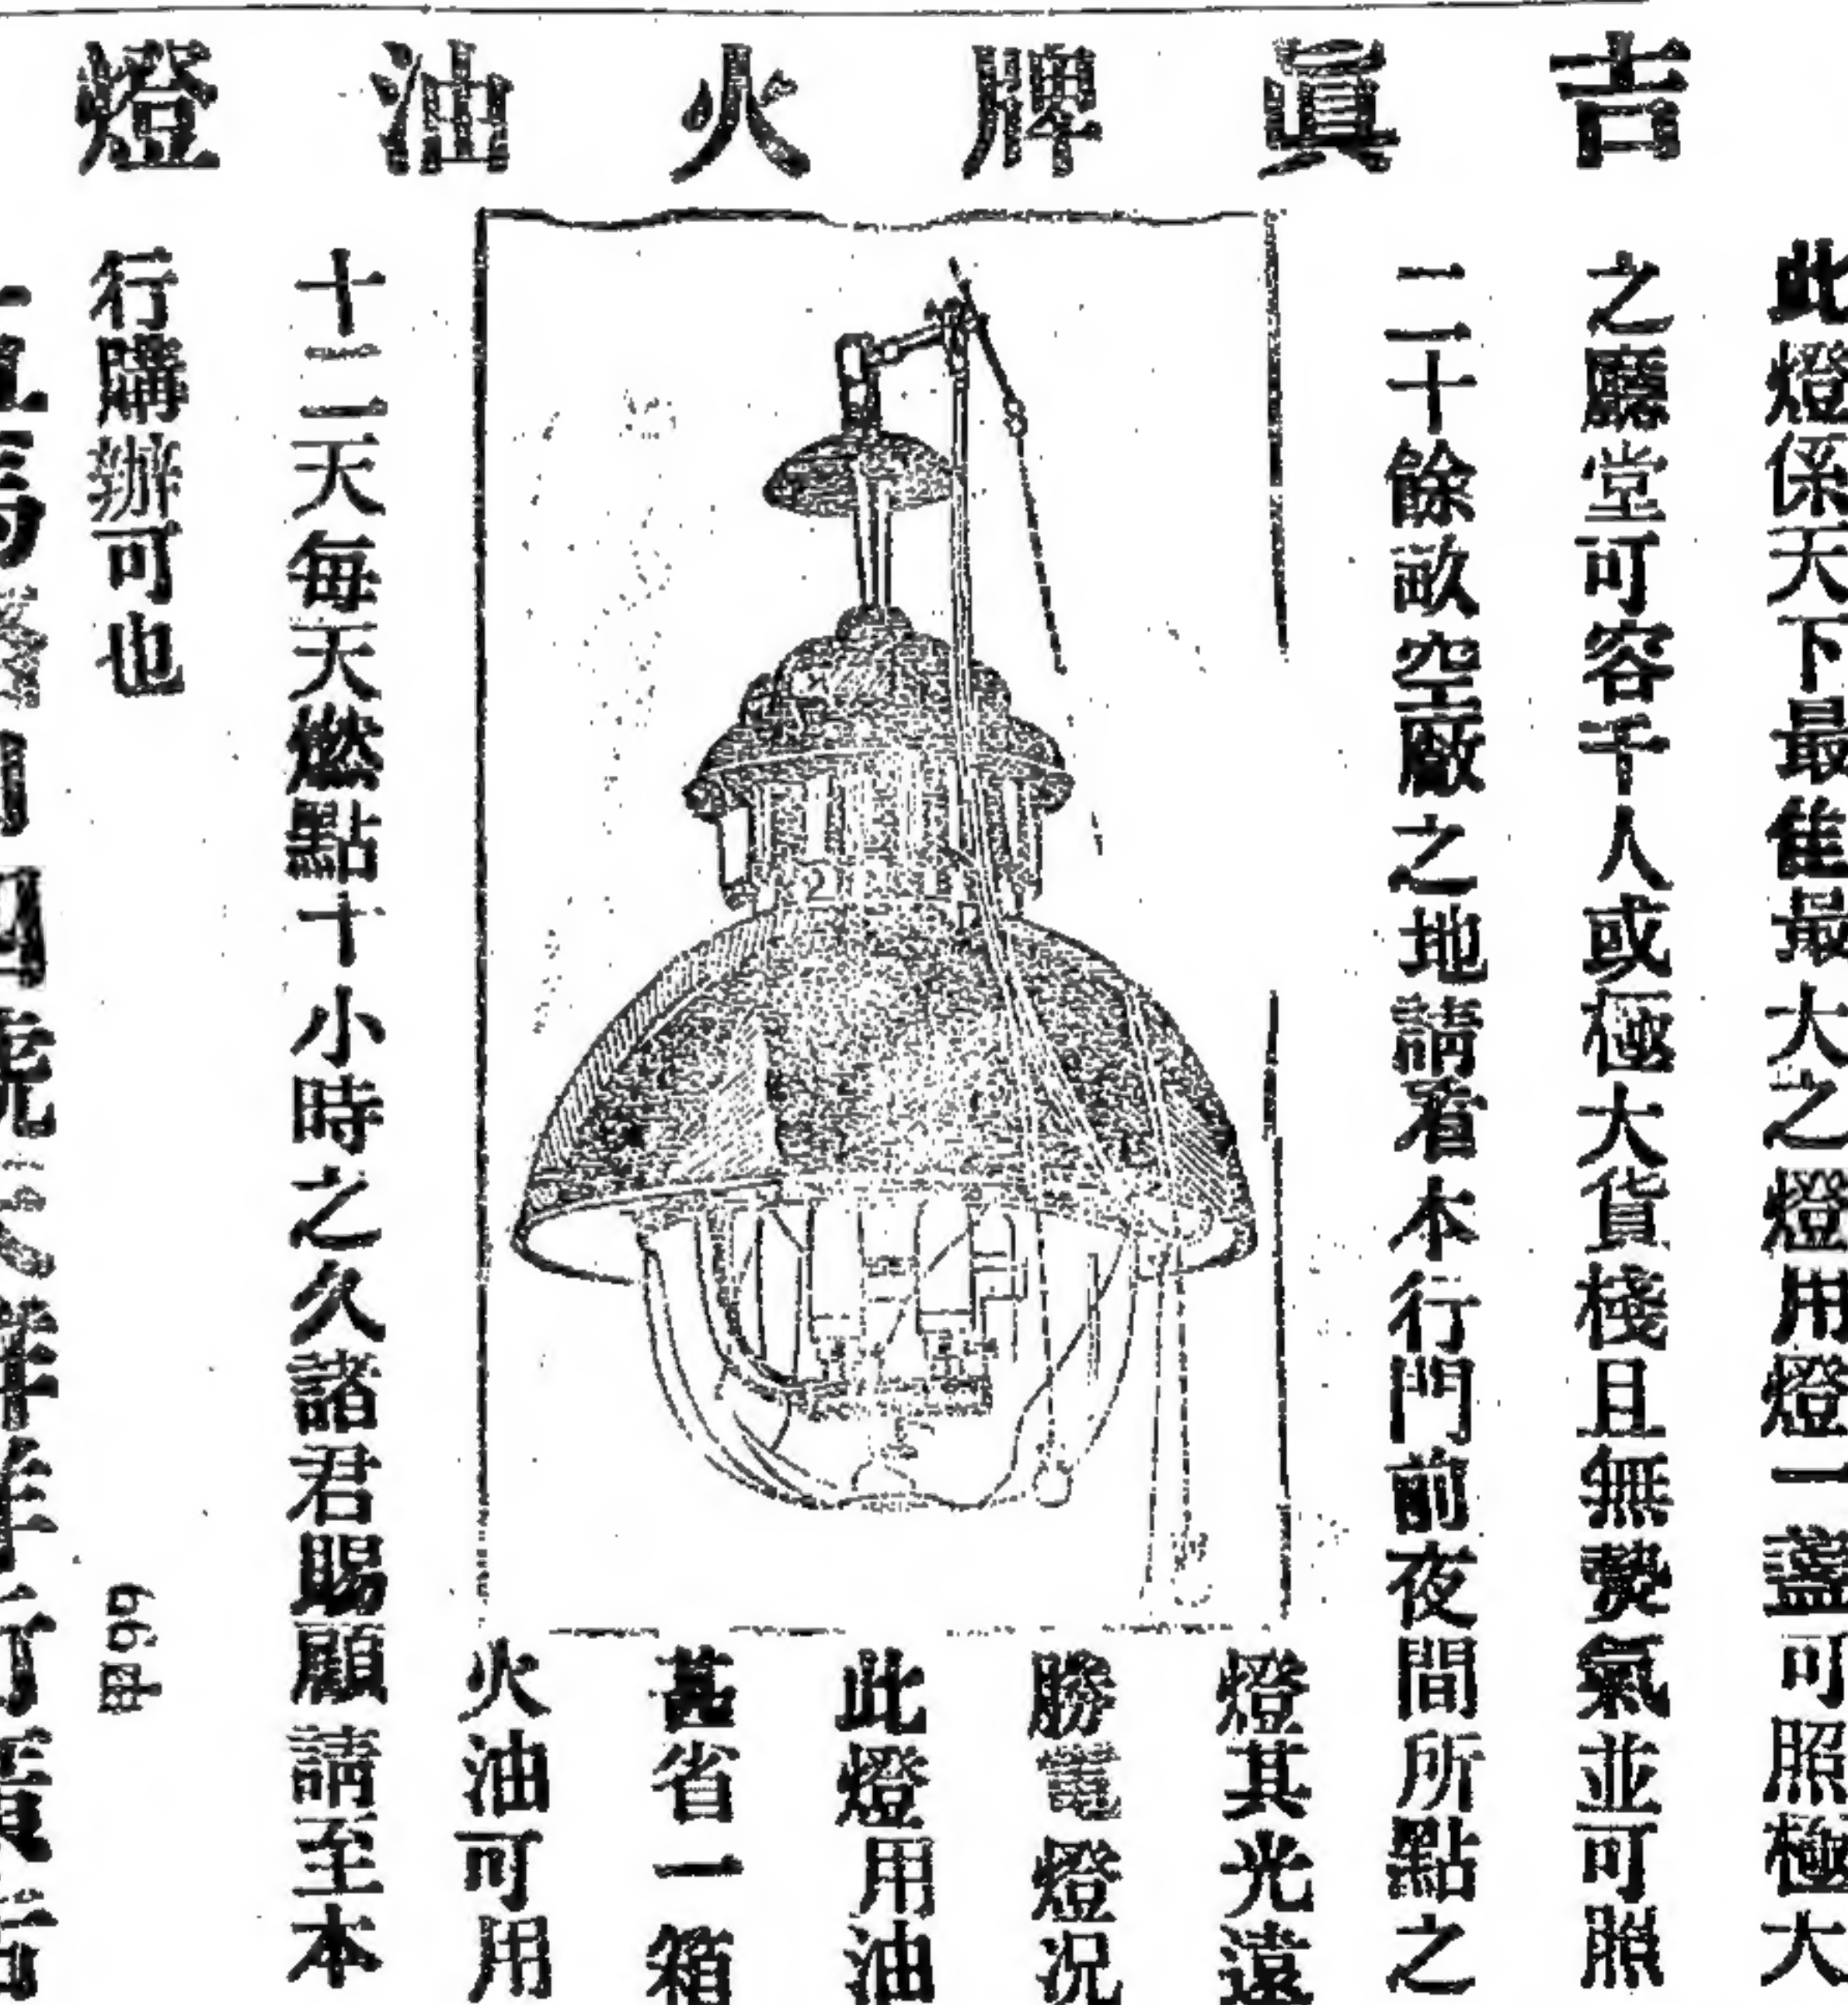 吉眞牌火油燈
此燈係天下最隹最大之燈用燈一盞可照極大
之廳堂可容千人或極大貨棧且無煢氣並可照
二十餘畝空廠之地請看本行門前夜間所點之
燈其光遠
勝電燈況
此燈用油
甚省一箱
火油可用
十二天每天燃點十小時之久諸君賜顧請至本
行購辦可也